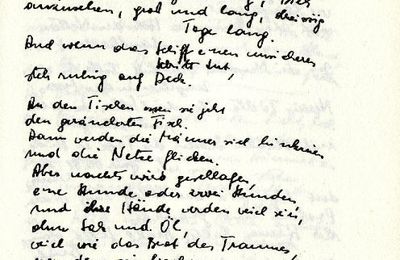 anzusehen, und lang, dreissig
Tage lang.
Und wenn das Schiff einen unsicheren
Schritt tut,
steh ruhig auf Deck.
An den Tischen essen sie jetzt
den geräucherten Fisch.
Dann werden die Männer sich hinknien
und die Netze flicken.
Aber nachts wird geschlafen,
eine Stunde oder zwei Stunden,
und ihre Hände werden weich sein,
ohne Salz und Öl,
weich wie das Brot des Traumes,